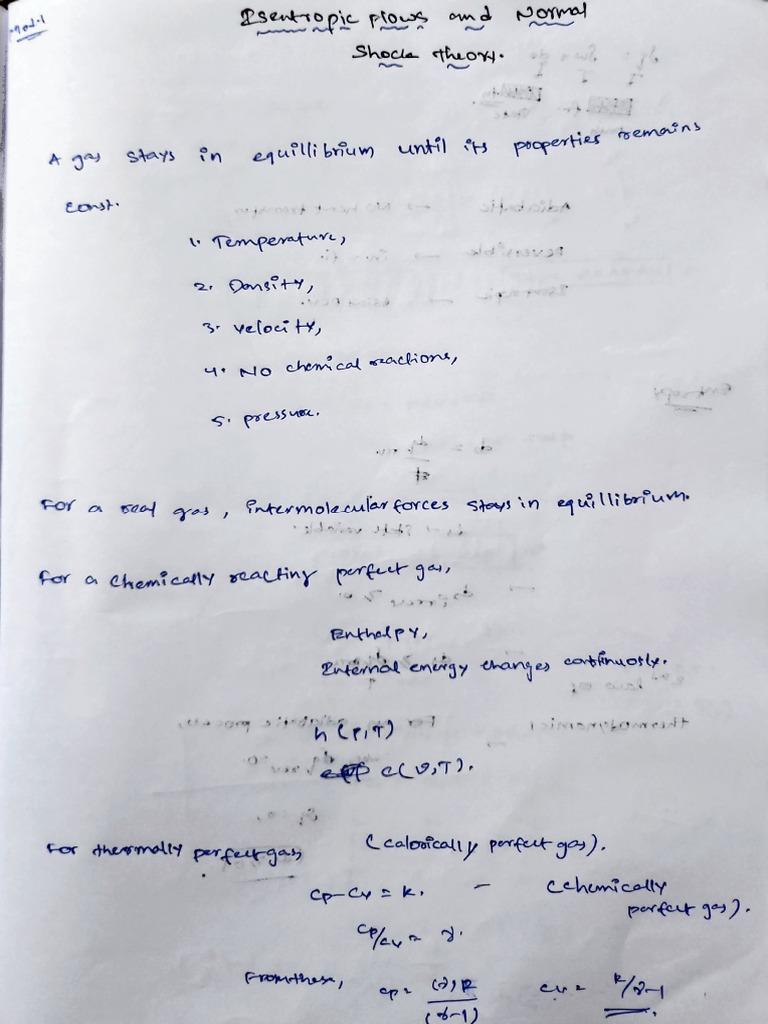 Mod-1
Isentropic flows and Normal
Shock theory.
A gas stays in equillibrium until its properties remains
const.
1. Temperature,
2. Density,
3. velocity,
4. No chemical reactions,
5. pressure.
For a real gas, intermolecular forces stays in equillibrium.
For a chemically reacting perfect gas,
Enthalpy,
Internal energy changes continuosly.
h (P,T)
e(v,T).
For thermally perfect gas, (calorically perfect gas).
Cp-Cv = R. - (chemically
perfect gas).
Cp/Cv = γ.
From these, Cp = (γ)R/(γ-1) Cv = R/γ-1